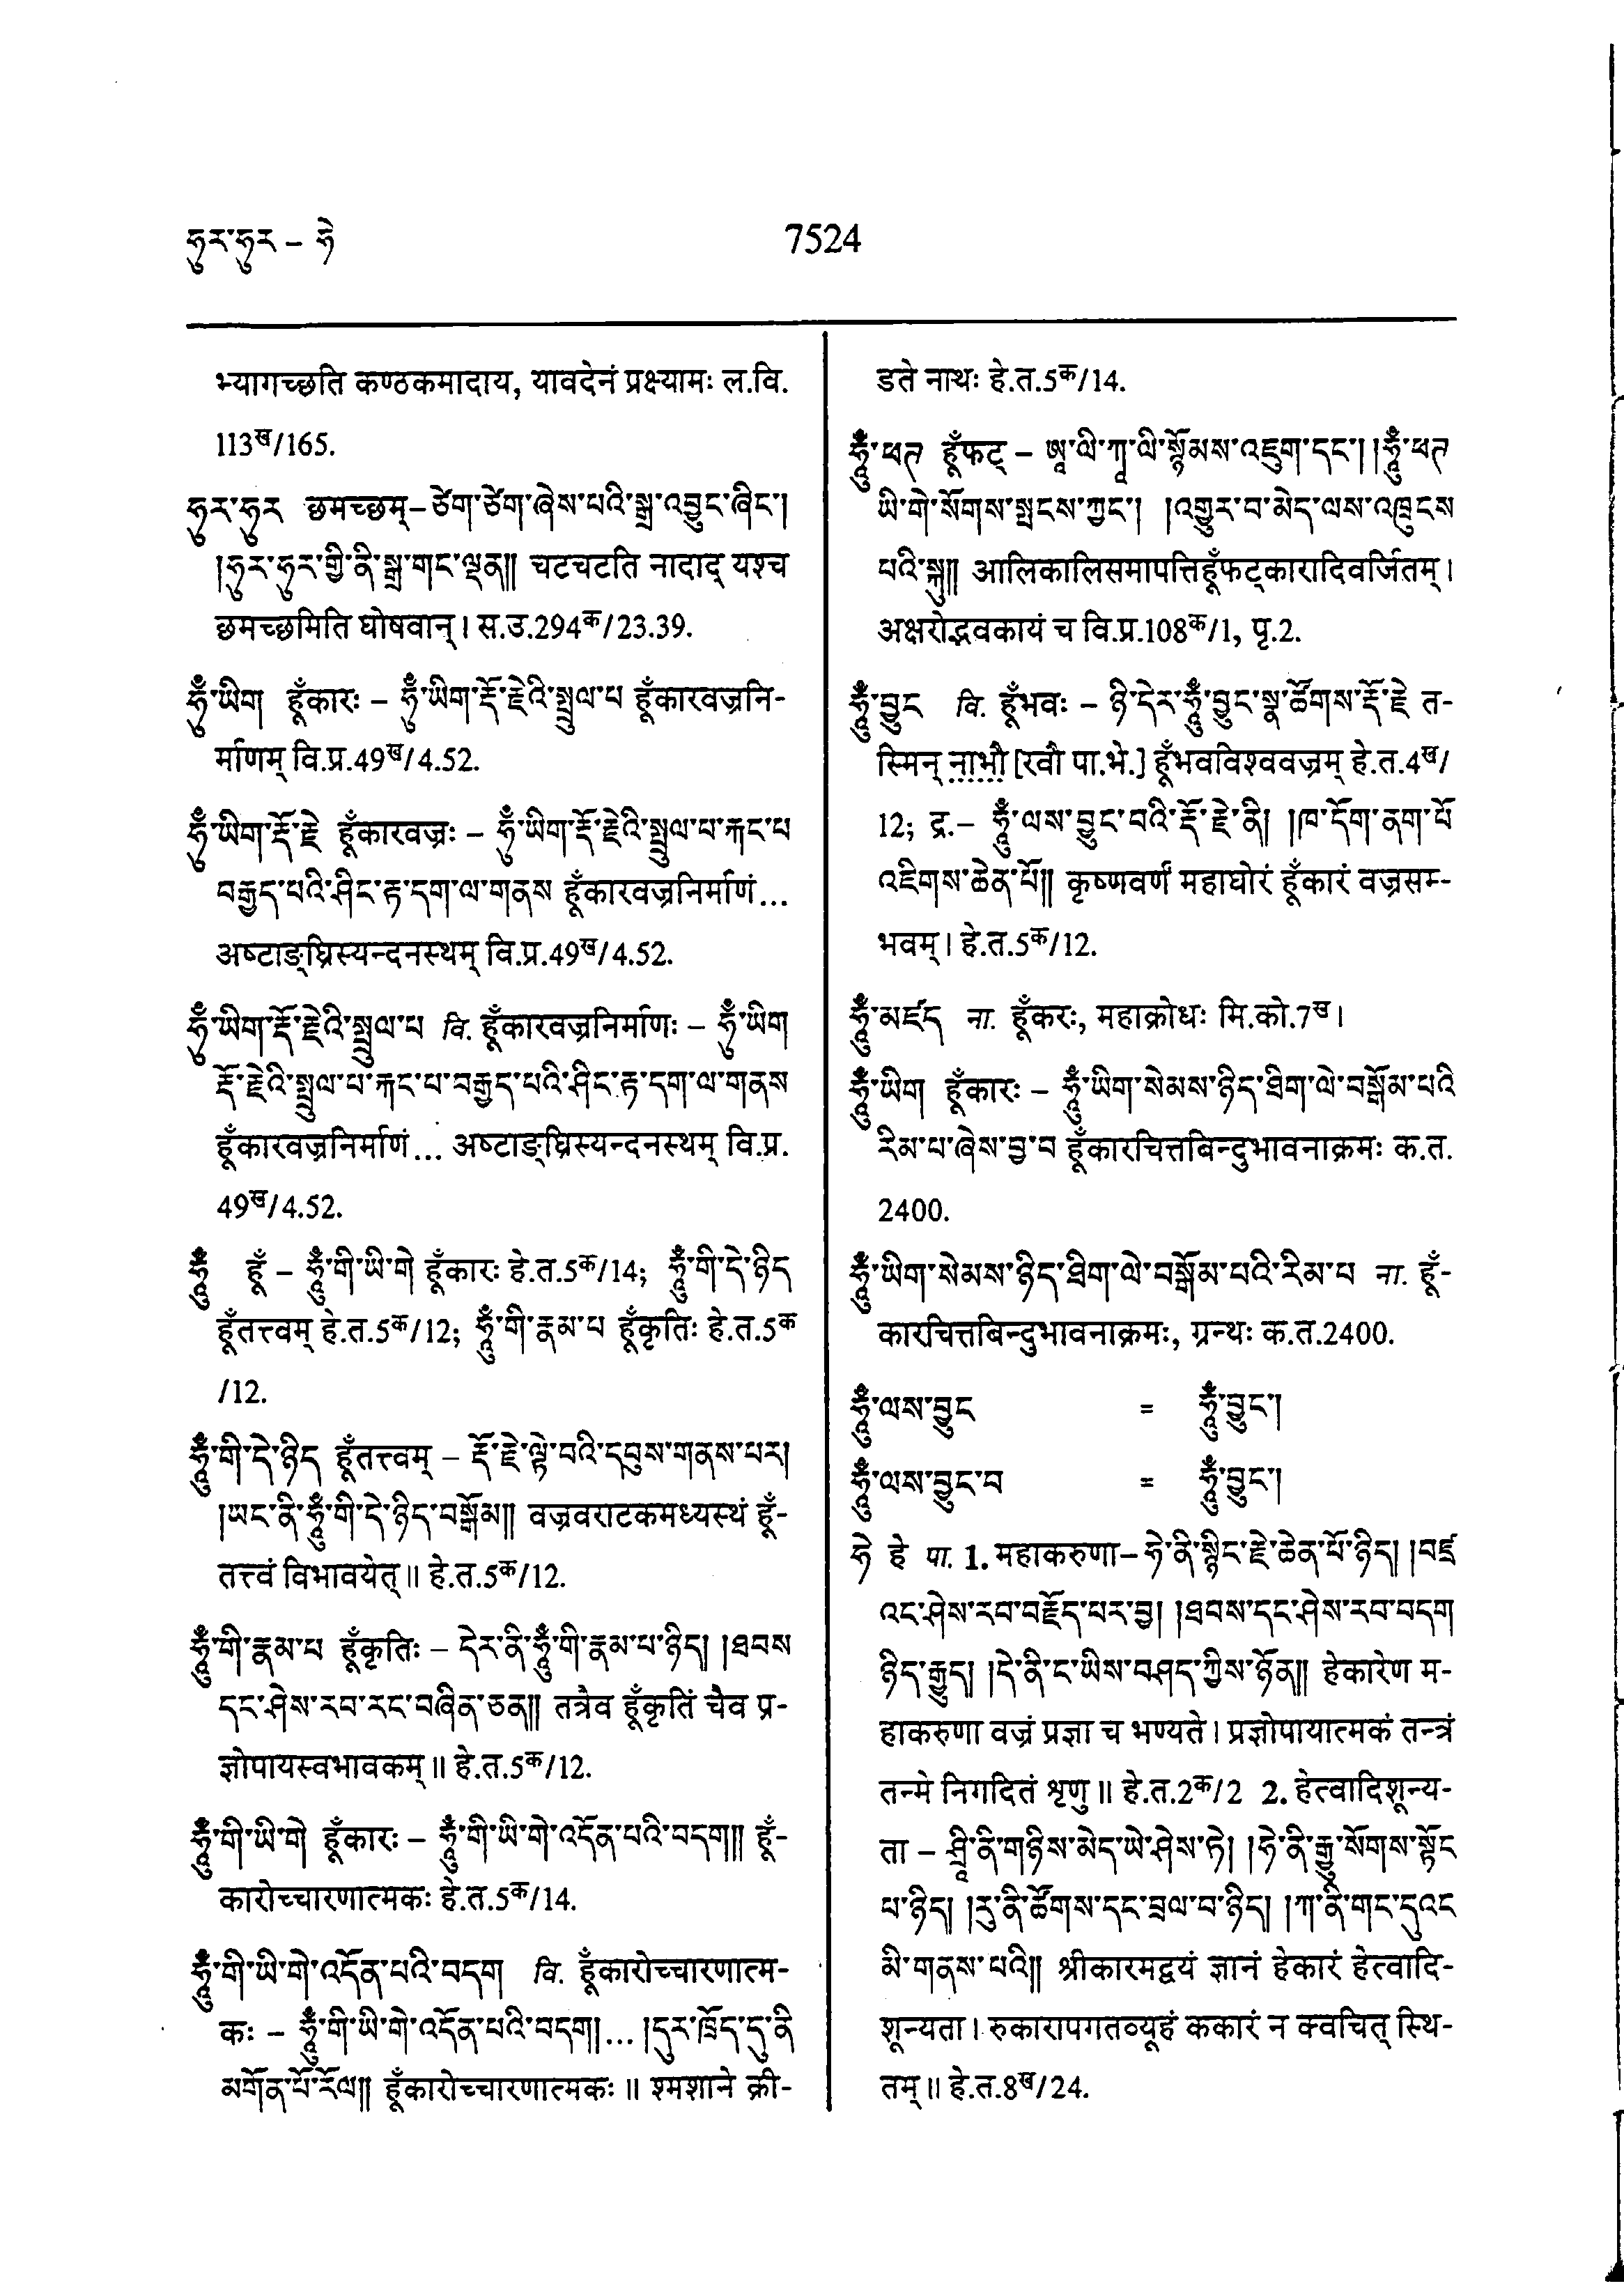 ཧུར་ཧུར – ཧེ
7524
भ्यागच्छति कण्ठकमादाय, यावदेनं प्रक्ष्यामः ल.वि.
113ख/165.
ཧུར་ཧུར छमच्छम्–ཙེག་ཙེག་ཞེས་པའི་སྒྲ་འབྱུང་ཞིང་།
།ཧུར་ཧུར་གྱི་ནི་སྒྲ་གང་ལྡན།། चटचटति नादाद् यश्च
छमच्छमिति घोषवान्। स.उ.294क/23.39.
ཧུྃ་ཡིག हूँकारः – ཧུྃ་ཡིག་རྡོ་རྗེའི་སྤྲུལ་པ हूँकारवज्रनि-
र्माणम् वि.प्र.49ख/4.52.
ཧུྃ་ཡིག་རྡོ་རྗེ हूँकारवज्रः – ཧུྃ་ཡིག་རྡོ་རྗེའི་སྤྲུལ་པ་རྐང་པ
བརྒྱད་པའི་ཤིང་རྟ་དག་ལ་གནས हूँकारवज्रनिर्माणं...
अष्टाङ्घ्रिस्यन्दनस्थम् वि.प्र.49ख/4.52.
ཧུྃ་ཡིག་རྡོ་རྗེའི་སྤྲུལ་པ वि. हूँकारवज्रनिर्माणः – ཧུྃ་ཡིག
རྡོ་རྗེའི་སྤྲུལ་པ་རྐང་པ་བརྒྱད་པའི་ཤིང་རྟ་དག་ལ་གནས
हूँकारवज्रनिर्माणं... अष्टाङ्घ्रिस्यन्दनस्थम् वि.प्र.
49ख/4.52.
ཧཱུྃ हूँ – ཧཱུྃ་གི་ཡི་གེ हूँकारः हे.त.5क/14; ཧཱུྃ་གི་དེ་ཉིད
हूँतत्त्वम् हे.त.5क/12; ཧཱུྃ་གི་རྣམ་པ हूँकृतिः हे.त.5क
/12.
ཧཱུྃ་གི་དེ་ཉིད हूँतत्त्वम् – རྡོ་རྗེ་ལྟེ་བའི་དབུས་གནས་པར།
།ཡང་ནི་ཧཱུྃ་གི་དེ་ཉིད་བསྒོམ།། वज्रवराटकमध्यस्थं हूँ-
तत्त्वं विभावयेत्॥ हे.त.5क/12.
ཧཱུྃ་གི་རྣམ་པ हूँकृतिः – དེར་ནི་ཧཱུྃ་གི་རྣམ་པ་ཉིད། །ཐབས
དང་ཤེས་རབ་རང་བཞིན་ཅན།། तत्रैव हूँकृतिं चैव प्र-
ज्ञोपायस्वभावकम्॥ हे.त.5क/12.
ཧཱུྃ་གི་ཡི་གེ हूँकारः – ཧཱུྃ་གི་ཡི་གེ་འདོན་པའི་བདག།། हूँ-
कारोच्चारणात्मकः हे.त.5क/14.
ཧཱུྃ་གི་ཡི་གེ་འདོན་པའི་བདག वि. हूँकारोच्चारणात्म-
कः – ཧཱུྃ་གི་ཡི་གེ་འདོན་པའི་བདག།... །དུར་ཁྲོད་དུ་ནི
མགོན་པོ་རོལ།། हूँकारोच्चारणात्मकः॥ श्मशाने क्री-
डते नाथः हे.त.5क/14.
ཧཱུྃ་ཕཊ हूँफट् – ཨཱ་ལི་ཀཱ་ལི་སྙོམས་འཇུག་དང་། །ཧཱུྃ་ཕཊ
ཡི་གེ་སོགས་སྤངས་ཀྱང་། །འགྱུར་བ་མེད་ལས་འཁྲུངས
པའི་སྐུ།། आलिकालिसमापत्तिहूँफट्कारादिवर्जितम्।
अक्षरोद्भवकायं च वि.प्र.108क/1, पृ.2.
ཧཱུྃ་བྱུང वि. हूँभवः – ཉི་དེར་ཧཱུྃ་བྱུང་སྣ་ཚོགས་རྡོ་རྗེ त-
स्मिन् नाभौ [रवौ पा.भे.] हूँभवविश्ववज्रम् हे.त.4ख/
12; द्र.– ཧཱུྃ་ལས་བྱུང་བའི་རྡོ་རྗེ་ནི། །ཁ་དོག་ནག་པོ
འཇིགས་ཆེན་པོ།། कृष्णवर्णं महाघोरं हूँकारं वज्रसम-
भवम्। हे.त.5क/12.
ཧཱུྃ་མཛད ना. हूँकरः, महाक्रोधः मि.को.7ख।
ཧཱུྃ་ཡིག हूँकारः – ཧཱུྃ་ཡིག་སེམས་ཉིད་ཐིག་ལེ་བསྒོམ་པའི
རིམ་པ་ཞེས་བྱ་བ हूँकारचित्तबिन्दुभावनाक्रमः क.त.
2400.
ཧཱུྃ་ཡིག་སེམས་ཉིད་ཐིག་ལེ་བསྒོམ་པའི་རིམ་པ ना. हूँ-
कारचित्तबिन्दुभावनाक्रमः, ग्रन्थः क.त.2400.
ཧཱུྃ་ལས་བྱུང = ཧཱུྃ་བྱུང་།
ཧཱུྃ་ལས་བྱུང་བ = ཧཱུྃ་བྱུང་།
ཧེ हे पा. 1. महाकरुणा–ཧེ་ནི་སྙིང་རྗེ་ཆེན་པོ་ཉིད། །བཛྲ
འང་ཤེས་རབ་བརྗོད་པར་བྱ། །ཐབས་དང་ཤེས་རབ་བདག
ཉིད་རྒྱུད། །དེ་ནི་ང་ཡིས་བཤད་ཀྱིས་ཉོན།། हेकारेण म-
हाकरुणा वज्रं प्रज्ञा च भण्यते। प्रज्ञोपायात्मकं तन्त्रं
तन्मे निगदितं शृणु॥ हे.त.2क/2 2. हेत्वादिशून्य-
ता – ཤྲཱི་ནི་གཉིས་མེད་ཡེ་ཤེས་ཏེ། །ཧེ་ནི་རྒྱུ་སོགས་སྟོང
པ་ཉིད། །རུ་ནི་ཚོགས་དང་བྲལ་བ་ཉིད། །ཀ་ནི་གང་དུའང
མི་གནས་པའི།། श्रीकारमद्वयं ज्ञानं हेकारं हेत्वादि-
शून्यता। रुकारापगतव्यूहं ककारं न क्वचित् स्थि-
तम्॥ हे.त.8ख/24.